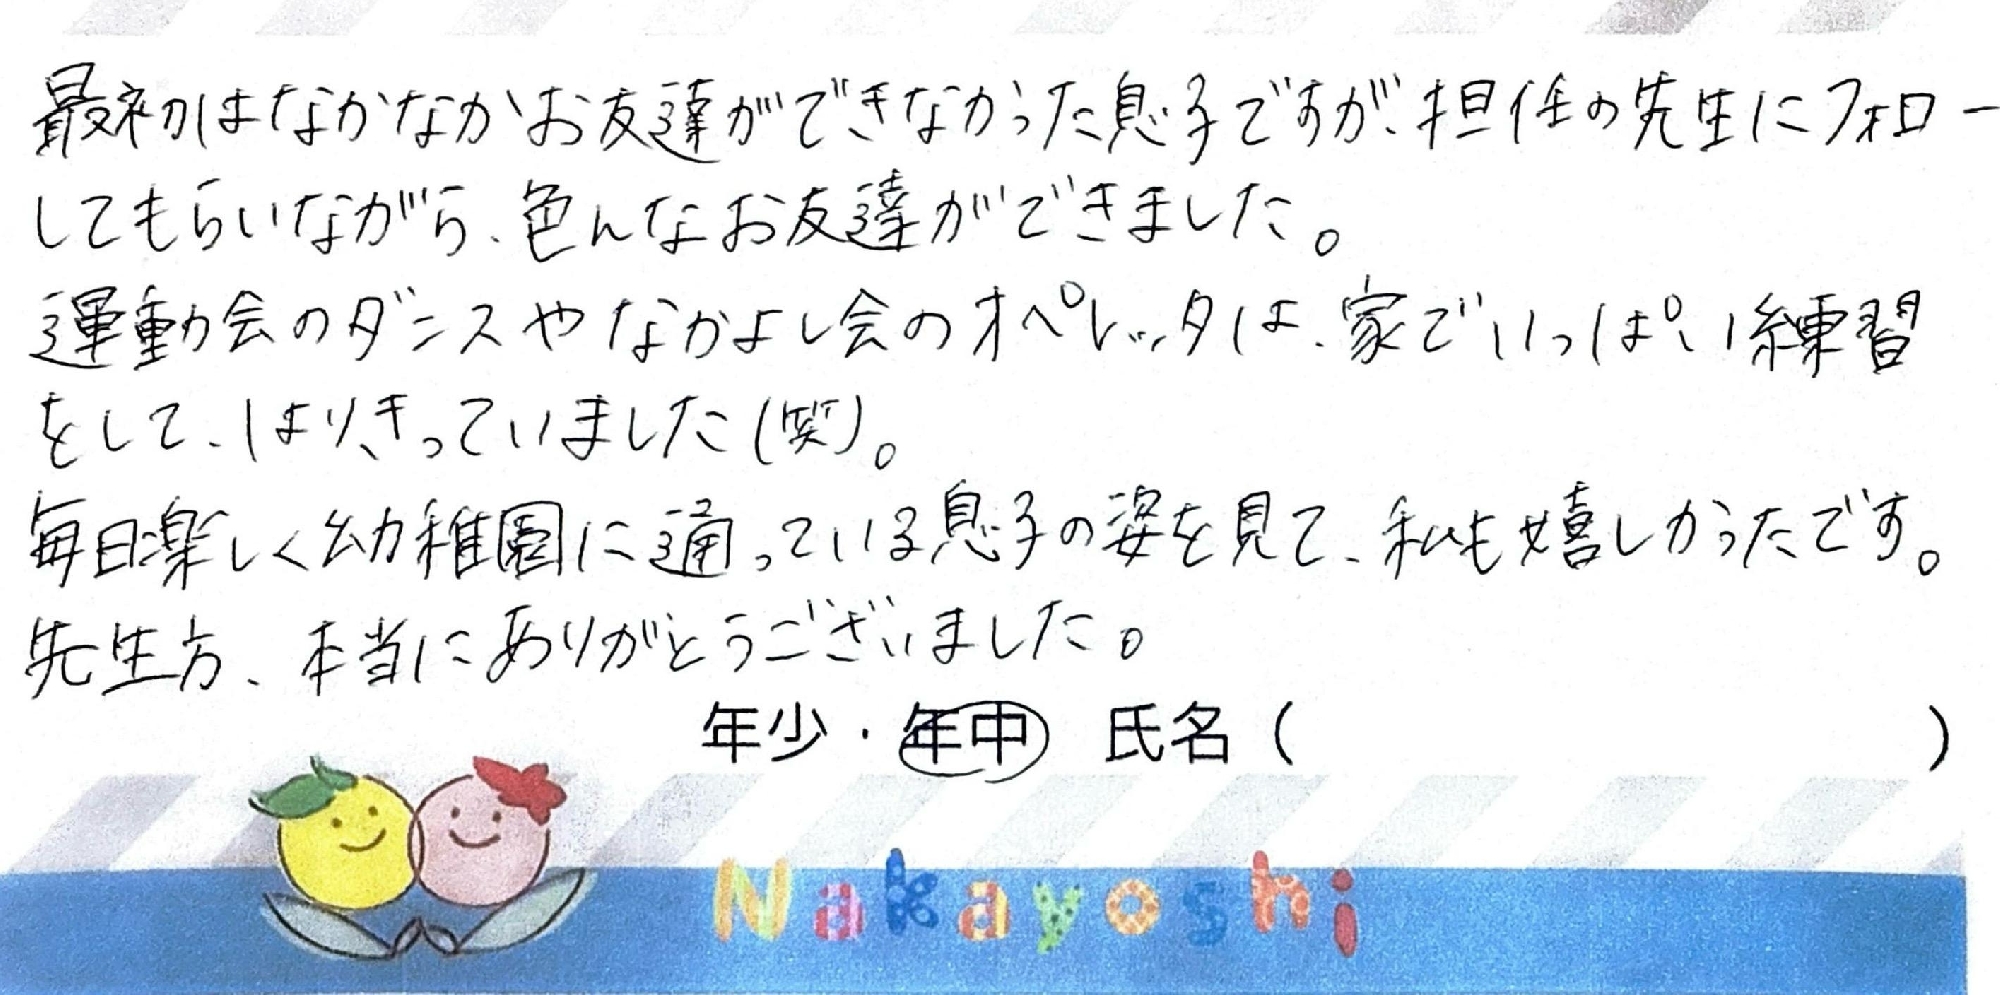 最初はなかなかお友達ができなかった息子ですが、担任の先生にフォロー
してもらいながら、色んなお友達ができました。
運動会のダンスやなかよし会のオペレッタは、家でいっぱい練習
をして、はりきっていました(笑)。
毎日楽しく幼稚園に通っている息子の姿を見て、私も嬉しかったです。
先生方、本当にありがとうございました。
年少・年中 氏名( )
Nakayoshi